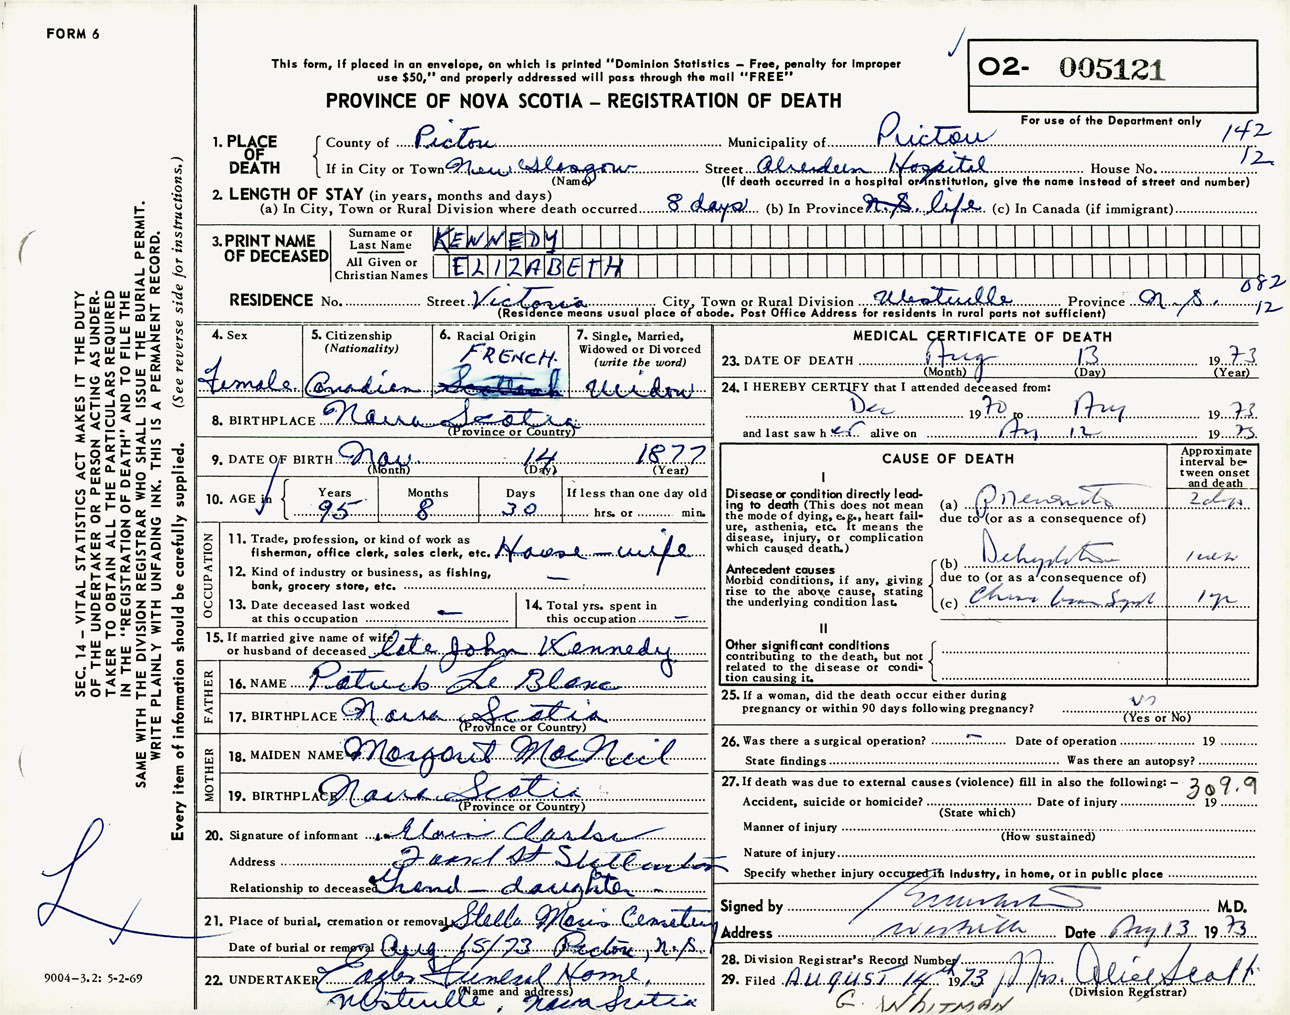 FORM 6
This form, if placed in an envelope, on which is printed "Dominion Statistics – Free, penalty for improper
use $50," and properly addressed will pass through the mail "FREE"
PROVINCE OF NOVA SCOTIA – REGISTRATION OF DEATH
O2- 005121
For use of the Department only
142
12
1. PLACE OF DEATH
County of Pictou Municipality of Pictou
If in City or Town New Glasgow Street Aberdeen Hospital House No.
(Name) (If death occurred in a hospital or institution, give the name instead of street and number)
2. LENGTH OF STAY (in years, months and days)
(a) In City, Town or Rural Division where death occurred 8 days (b) In Province N.S. life (c) In Canada (if immigrant)
3. PRINT NAME OF DECEASED
Surname or Last Name KENNEDY
All Given or Christian Names ELIZABETH
082
12
RESIDENCE No. Street Victoria City, Town or Rural Division Westville Province N.S.
(Residence means usual place of abode. Post Office Address for residents in rural parts not sufficient)
4. Sex
Female
5. Citizenship (Nationality)
Canadian
6. Racial Origin
FRENCH
Scottish
7. Single, Married, Widowed or Divorced (write the word)
Widow
8. BIRTHPLACE Nova Scotia
(Province or Country)
9. DATE OF BIRTH Nov. 14 1877
(Month) (Day) (Year)
10. AGE in
Years Months Days If less than one day old
95 8 30 hrs. or min.
OCCUPATION
11. Trade, profession, or kind of work as
fisherman, office clerk, sales clerk, etc. House-wife
12. Kind of industry or business, as fishing,
bank, grocery store, etc. —
13. Date deceased last worked
at this occupation —
14. Total yrs. spent in
this occupation —
15. If married give name of wife
or husband of deceased late John Kennedy
FATHER
16. NAME Patrick Le Blanc
17. BIRTHPLACE Nova Scotia
(Province or Country)
MOTHER
18. MAIDEN NAME Margaret MacNeil
19. BIRTHPLACE Nova Scotia
(Province or Country)
20. Signature of informant Clarke
Address St Stellarton
Relationship to deceased Grand-daughter
21. Place of burial, cremation or removal Stella Maris Cemetery
Date of burial or removal Aug 15/73 Pictou, N.S.
22. UNDERTAKER Eagles Funeral Home,
(Name and address)
Westville, Nova Scotia
MEDICAL CERTIFICATE OF DEATH
23. DATE OF DEATH Aug 13 1973
(Month) (Day) (Year)
24. I HEREBY CERTIFY that I attended deceased from:
Dec 1970 to Aug 1973
and last saw her alive on Aug 12 1973
CAUSE OF DEATH
Approximate interval between onset and death
I
Disease or condition directly lead-
ing to death (This does not mean
the mode of dying, e.g., heart fail-
ure, asthenia, etc. It means the
disease, injury, or complication
which caused death.)
(a) Pneumonitis 2 days
due to (or as a consequence of)
Antecedent causes
Morbid conditions, if any, giving
rise to the above cause, stating
the underlying condition last.
(b) Dehydration 1 week
due to (or as a consequence of)
(c) Chronic Brain Synd 1 yr
II
Other significant conditions
contributing to the death, but not
related to the disease or condi-
tion causing it.
25. If a woman, did the death occur either during
pregnancy or within 90 days following pregnancy? no
(Yes or No)
26. Was there a surgical operation? – Date of operation 19
State findings Was there an autopsy?
27. If death was due to external causes (violence) fill in also the following: –
309.9
Accident, suicide or homicide? Date of injury 19
(State which)
Manner of injury
(How sustained)
Nature of injury
Specify whether injury occurred in industry, in home, or in public place
Signed by M.D.
Address Westville Date Aug 13 1973
28. Division Registrar's Record Number
29. Filed AUGUST 14th 1973 Mrs. Alice Scott
(Division Registrar)
G. WHITMAN
SEC. 14 – VITAL STATISTICS ACT MAKES IT THE DUTY
OF THE UNDERTAKER OR PERSON ACTING AS UNDER-
TAKER TO OBTAIN ALL THE PARTICULARS REQUIRED
IN THE "REGISTRATION OF DEATH" AND TO FILE THE
SAME WITH THE DIVISION REGISTRAR WHO SHALL ISSUE THE BURIAL PERMIT.
WRITE PLAINLY WITH UNFADING INK. THIS IS A PERMANENT RECORD.
Every item of information should be carefully supplied. (See reverse side for instructions.)
9004–3.2: 5-2-69